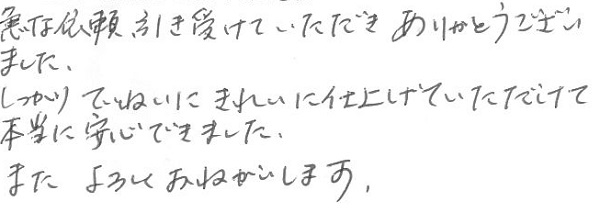 急な依頼引き受けていただきありがとうござい
ました。
しっかりていねいにきれいに仕上げていただけて
本当に安心できました。
またよろしくおねがいします。